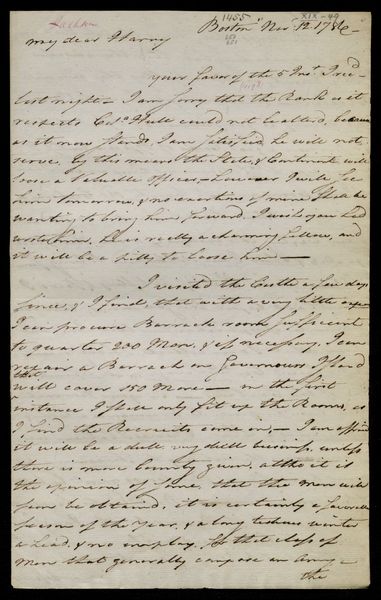 Jackson
1455
XIX-49
Boston Nov 12. 1786 -
my dear Harry
your favor of the 5 Inst. I rec'd
last night - I am sorry that the Rank as it
respects Capt. Hull could not be altered, because
as it now stands, I am satisfied he will not
serve. by this means the State, & Continent will
loose a valuable officer, - however I will see
him tomorrow, & no exertions of mine shall be
wanting to bring him forward. I wish you had
wrote him, he is really a charming fellow, and
it will be a pitty to loose him -
I visited the Castle a few days
since, & I find, that with a very little expence
I can procure Barrack room sufficient
to quarter 250 Men, & if necessary, I can
repair a Barrack on Governours Island
that will cover 150 More - in the first
instance I shall only fit up the Rooms, as
I find the Recruits come on, - I am affraid
it will be a dull very dull business, unless
there is more bounty given, altho it is
the opinion of some, that the men will
soon be obtained, it is certainly a favorable
season of the Year, & a long tedious winter
a head, & no employ for that class of
Men that generally compose an Army -
the